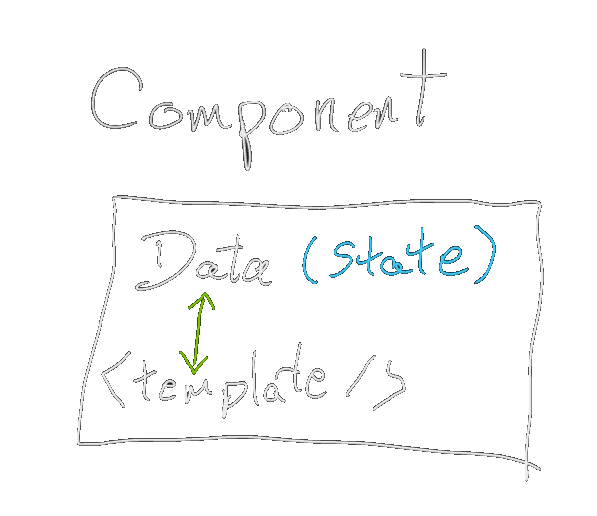 Component
Data (state)
<template />